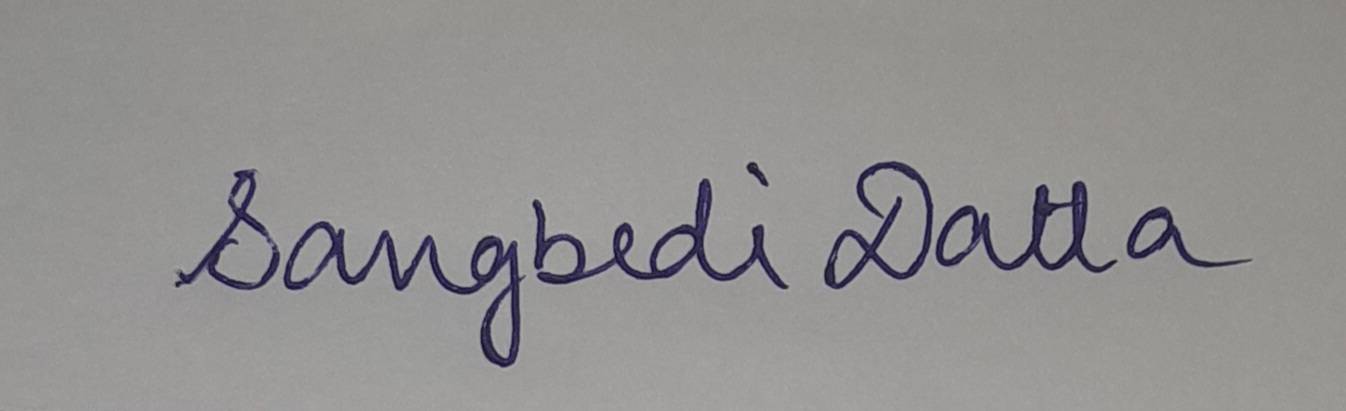 Sangbedi Datta